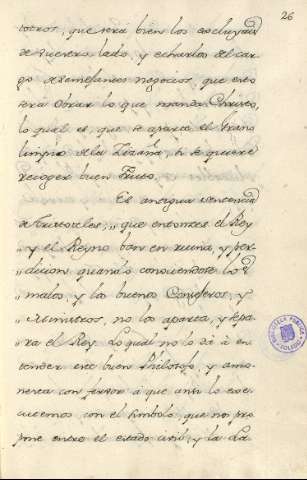 26
totros, que será bien los excluyais
de vuestro lado, y echarlos del car-
go desemejantes negocios, que esto
sera obrar lo que manda Christo,
lo qual es, que se aparte el grano
limpio de la Zizaña, si se quiere
recoger buen fruto.
Es antigua sentencia
de Aristoteles, „ que entonces el Rey
„ y el Reyno ban en ruina, y per-
„ dicion quando conociendose los
„ malos, y los buenos Consejeros, y
„ Ministros, no los aparta, y sepa-
ra el Rey. Lo qual no lo dá á en-
tender este buen Philosofo, y amo-
nesta con fervor á que assi lo exe-
cutemos con el simbolo, que nos pro-
pone entre el estado util, y la La-
BIBLIOTECA PUBLICA
TOLEDO